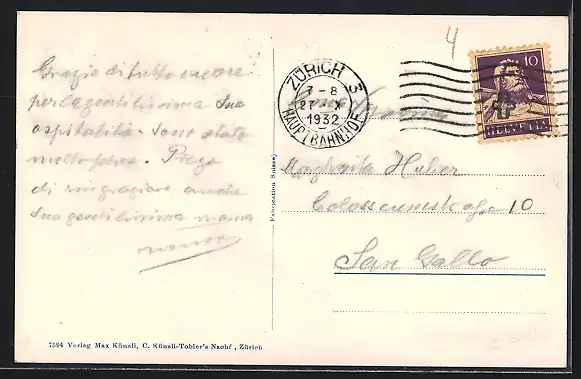 Grazie di tutto cuore
per la gentilissima Sua
ospitalità. Sono stato
molto bene. Prego
di ringraziare anche
Sua gentilissima mama
4
ZÜRICH 3
7-8
27. X
1932
HAUPTBAHNHOF
10
HELVETIA
Margherita Huber
10
San Gallo
(Fabrication Suisse)
7594 Verlag Max Künzli, C. Künzli-Tobler's Nachf., Zürich